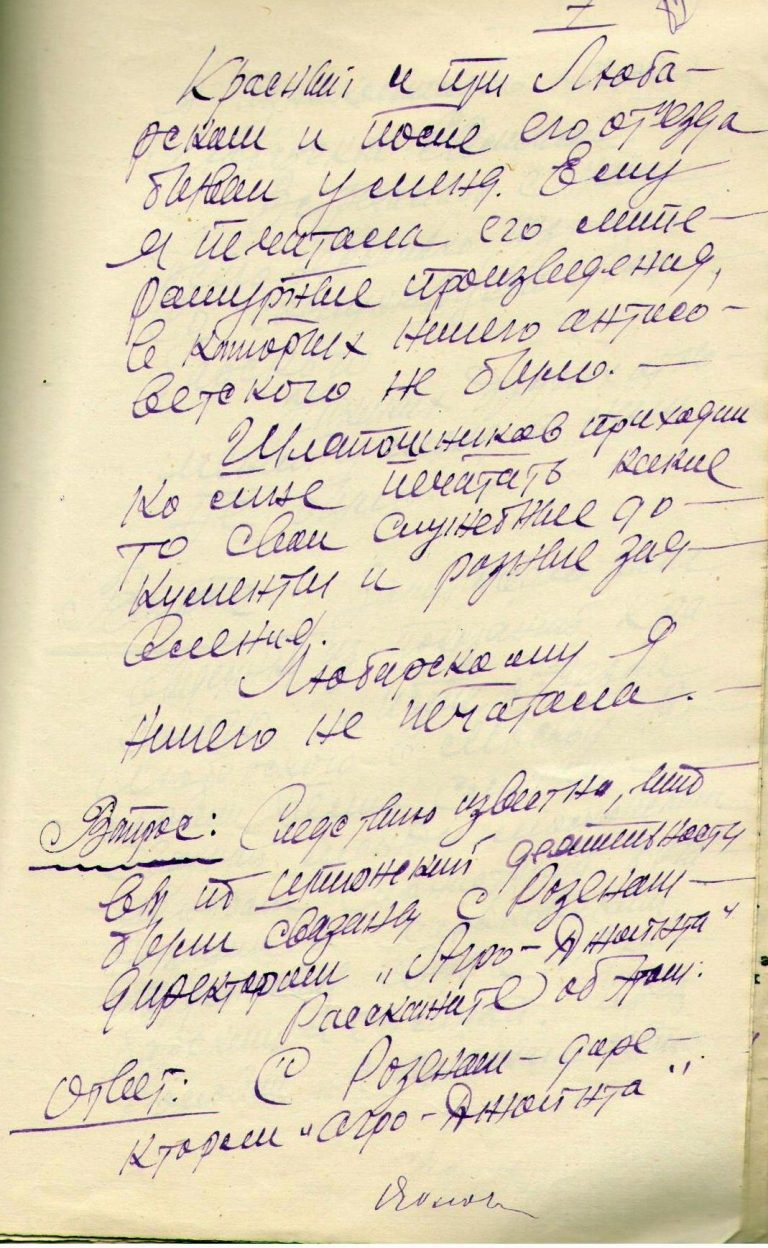 7
Красный и при Люба-
рском и после его отъезда
бывал у меня. Ему
я печатала его лите-
ратурные произведения,
в которых ничего антисо-
ветского не было. —
Шлапочников приходил
ко мне печатать какие
то свои служебные до-
кументы и разные зая-
вления.
Любарскому я
ничего не печатала. —
Вопрос: Следствию известно, что
вы по шпионской деятельности
были связаны с Розеном —
директором „Агро-Джойнта"
Расскажите об этом.
Ответ: С Розеном — дире-
ктором „Агро-Джойнта"